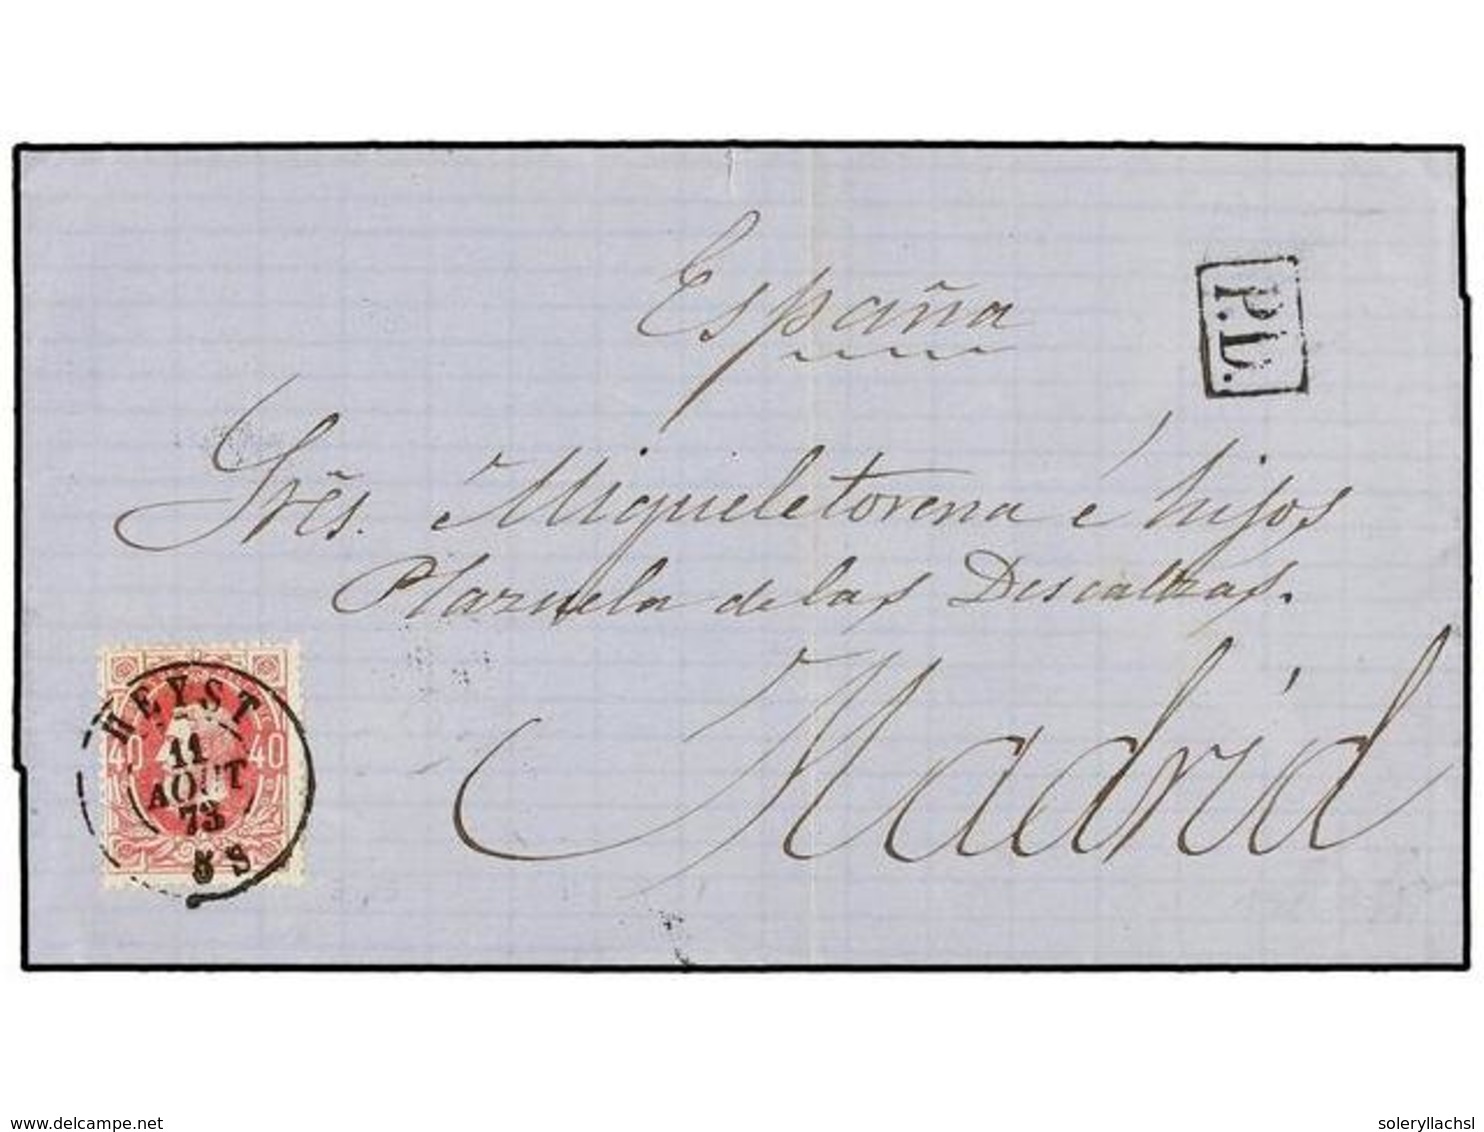 España
P.D.
Srẽs. Migueletorena é hijos
Plazuela de las Descalzas.
Madrid
HEYST
40 40
11
AOUT
73
5 S
delcampe.net
soleryllachsl